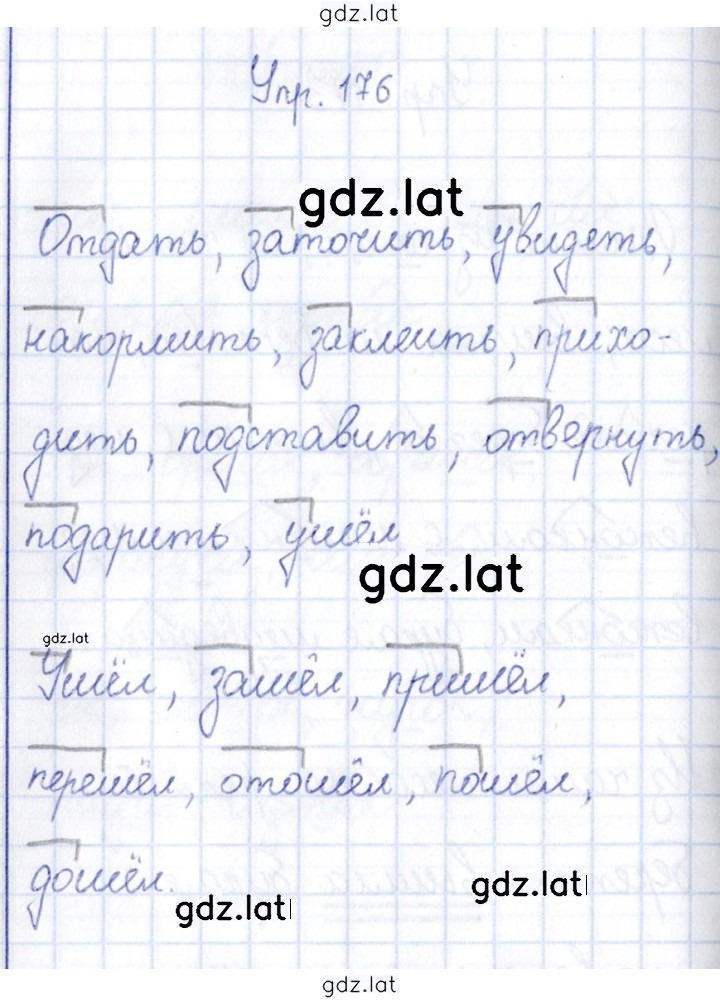 gdz.lat
Упр. 176
gdz.lat
Отдать, заточить, увидеть,
накормить, заклеить, прихо-
дить, подставить, отвернуть,
подарить, ушёл
gdz.lat
gdz.lat
Ушёл, зашёл, пришёл,
перешёл, отошёл, пошёл,
дошёл.
gdz.lat
gdz.lat
gdz.lat